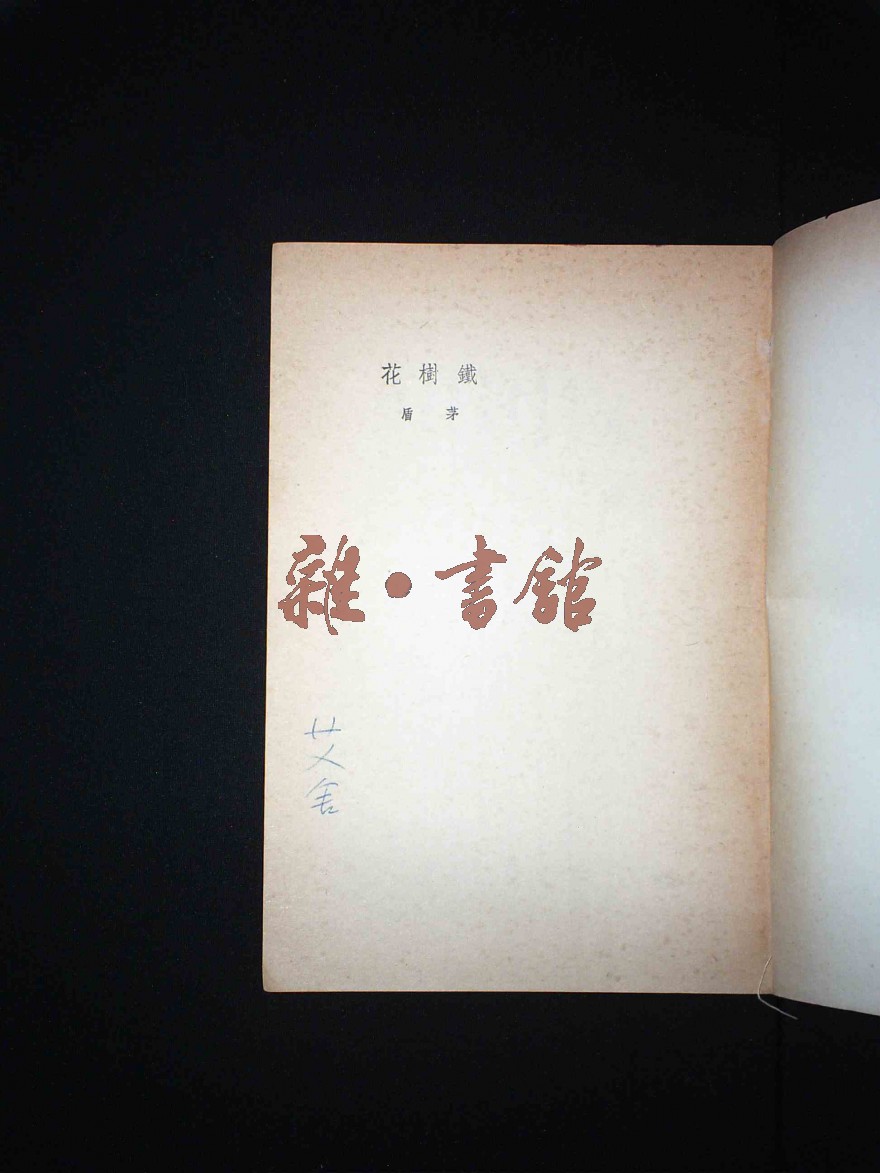 鐵樹花
茅盾
雜·書館
艾舍